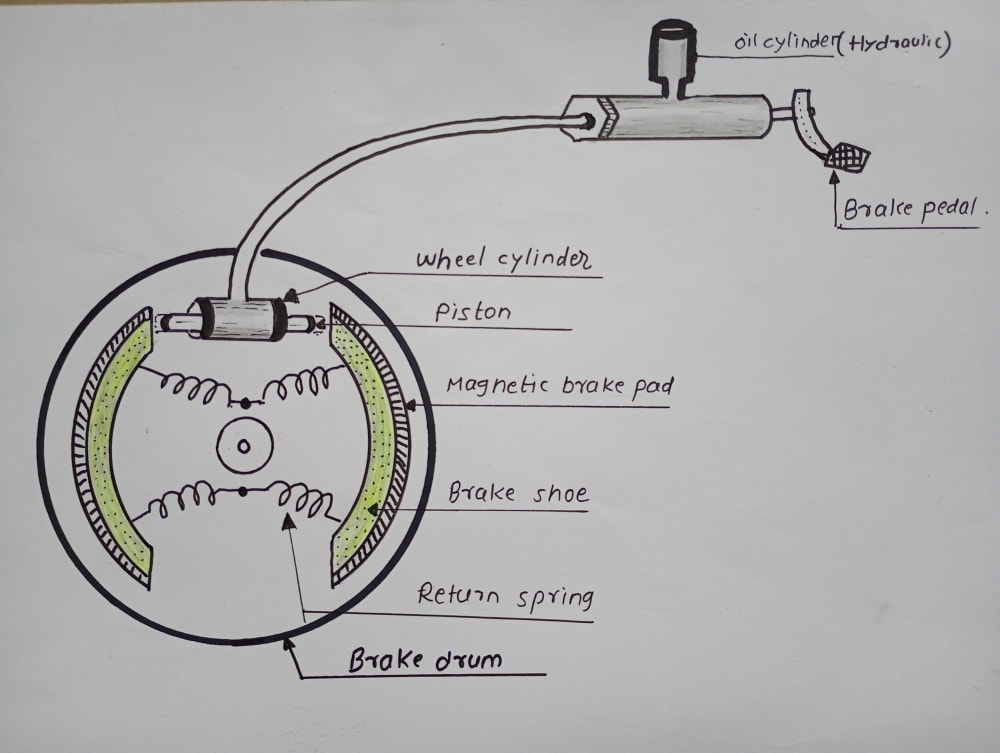 oil cylinder(Hydraulic)
Brake pedal.
Wheel cylinder
Piston
Magnetic brake pad
Brake shoe
Return spring
Brake drum